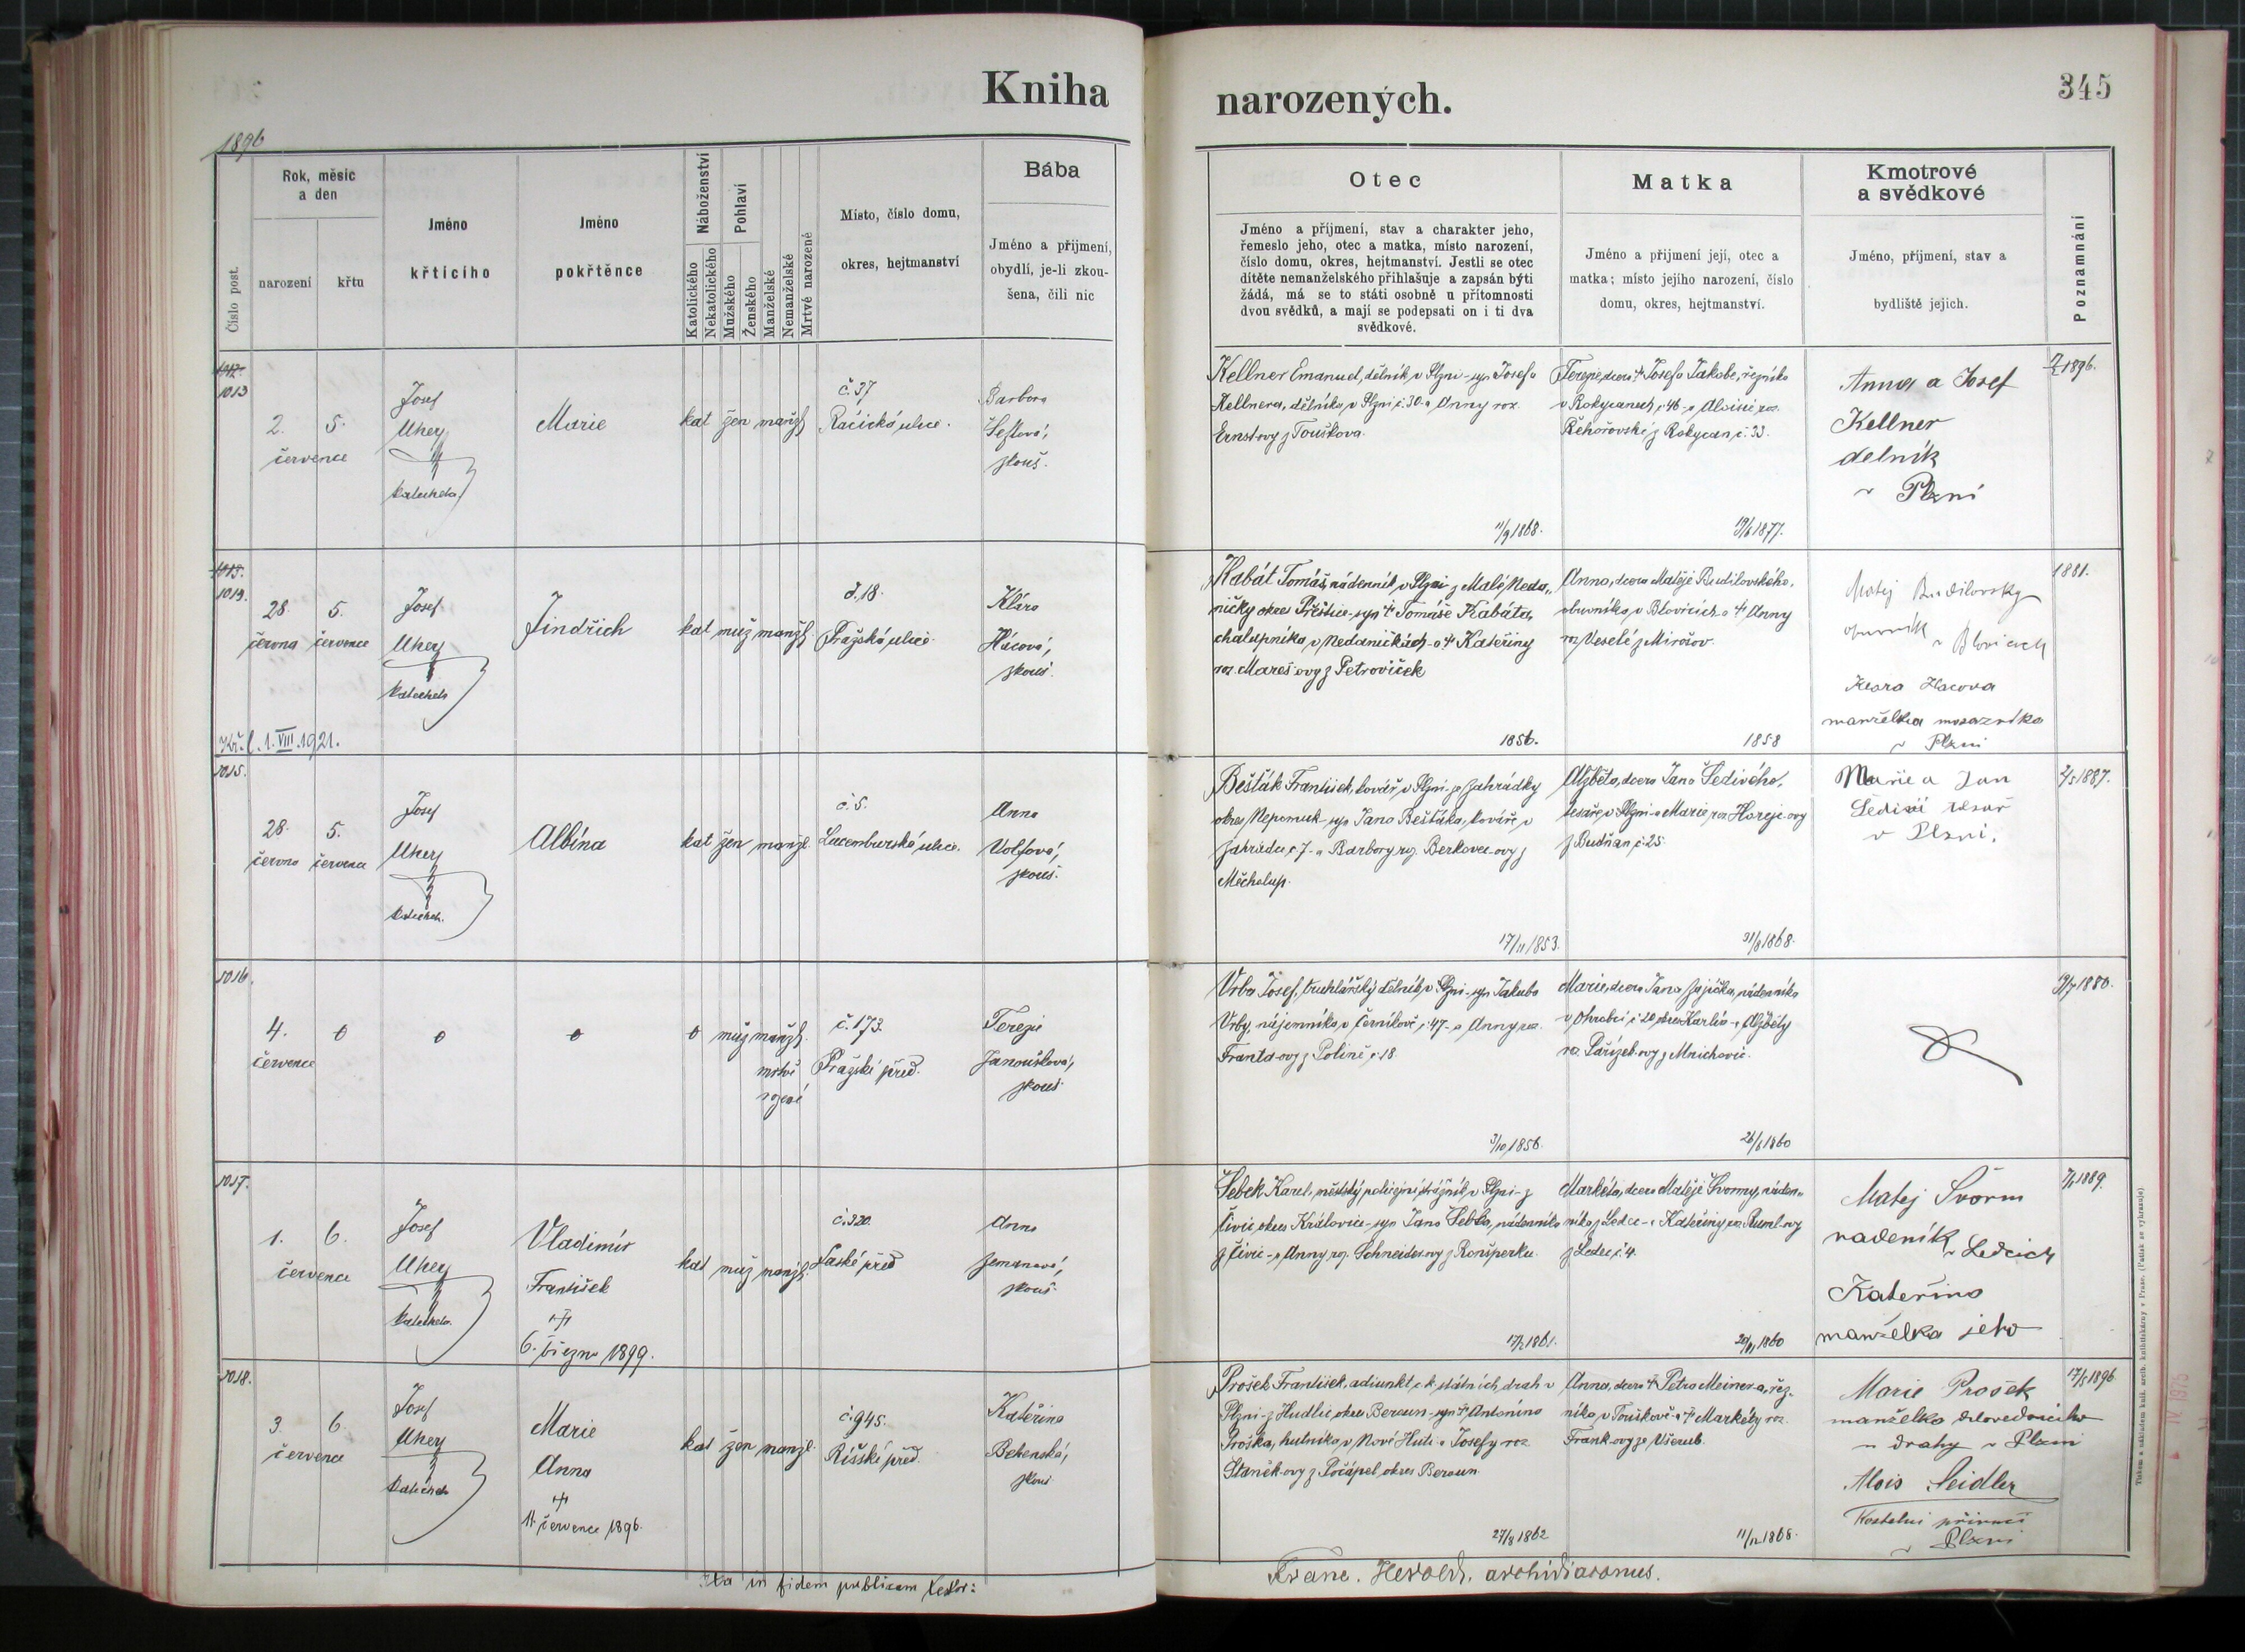 Kniha
narozených.
345
1896
Číslo post.
Rok, měsíc
a den
narození
křtu
Jméno
křtícího
Jméno
pokřtěnce
Náboženství
Katolického
Nekatolického
Pohlaví
Mužského
Ženského
Manželské
Nemanželské
Mrtvě narozené
Místo, číslo domu,
okres, hejtmanství
Bába
Jméno a příjmení,
obydlí, je-li zkou-
šena, čili nic
Otec
Jméno a příjmení, stav a charakter jeho,
řemeslo jeho, otec a matka, místo narození,
číslo domu, okres, hejtmanství. Jestli se otec
dítěte nemanželského přihlašuje a zapsán býti
žádá, má se to státi osobně u přítomnosti
dvou svědků, a mají se podepsati on i ti dva
svědkové.
Matka
Jméno a příjmení její, otec a
matka; místo jejího narození, číslo
domu, okres, hejtmanství.
Kmotrové
a svědkové
Jméno, příjmení, stav a
bydliště jejich.
Poznamnání
1013
2. 5.
července
Josef
Uher
katecheta
Marie
kat žen manžl
č. 37
Račická ulice.
Barbora
zkouš.
Kellner Emanuel, dělník v Plzni - syn Josefa
Kellnera, dělníka v Plzni č. 30. a Anny roz.
Ernst-ovy z Touškova.
11/9 1868.
Terezie, dcera † Josefa Jakobe, řezníka
v Rokycanech č. 46 - a Aloisie roz.
Řehořovské z Rokycan č. 33.
19/6 1877.
Anna a Josef
Kellner
delník
v Plzni
1896.
1014.
28. 5.
června července
Josef
Uher
katecheta
Jindřich
kat muž manžl
č. 18.
Pražská ulice.
Klára
Hácová,
zkouš.
Kabát Tomáš, nádenník v Plzni - z Malé Neda-
ničky okres Přeštice - syn † Tomáše Kabáta,
chalupníka v Nedaničkách - a † Kateřiny
roz. Mareš-ovy z Petroviček
1856.
Anna, dcera Matěje Budilovského,
obuvníka v Blovicích - a † Anny
roz. Veselé z Mirošov.
1858
Matej Budilovsky
obuvník
v Blovicich
Klara Hacova
manželka mosazníka
v Plzni
1881.
1. VIII. 1921.
1015.
28. 5.
června července
Josef
Uher
katechet.
Albína
kat žen manžl.
č. 5.
Lucemburská ulice.
Anna
Volfová,
zkouš.
Bešťák František, kovář v Plzni - ze Zahrádky
okres Nepomuk - syn Jana Bešťáka, kováře v
Zahrádce č. 7 - a Barbory roz. Berkovec-ovy z
Měcholup.
17/11 1853.
Alžběta, dcera Jana Šedivého,
tesaře v Plzni - a Marie roz. Horeje-ovy
z Budňan č. 25.
31/8 1868.
Marie a Jan
Šedivi tesař
v Plzni.
1887.
1016.
4.
července
muž manžl.
mrtvě
rozené
č. 173.
Pražské před.
Terezie
Janoušková,
zkouš
Vrba Josef, truhlářský dělník v Plzni - syn Jakuba
Vrby, nájemníka v Černíkově č. 47 - a Anny roz.
Franta-ovy z Polině č. 18.
3/10 1856.
Marie, dcera Jana Zajíčka, nádenníka
v Ohrobci č. 20 okres Karlín - a Alžběty
roz. Pařízek-ovy z Mnichovic.
26/6 1860
1880.
1017.
1. 6.
července
Josef
Uher
katecheta.
Vladimír
František
†
6. března 1899.
kat muž manžl.
č. 320.
Saské před
Anna
Zemanová,
zkouš.
Šebek Karel, městský policejní strážník v Plzni - z
Čivic, okres Královice - syn Jana Šebka, nádenníka
z Čivic - a Anny roz. Schneider-ovy z Ronšperku.
1861.
Markéta, dcera Matěje Švormy, náden-
níka z Ledce - a Kateřiny roz. Ruml-ovy
z Ledec č. 4.
1860
Matej Švorm
nadeník
v Ledcich
Kateřina
manželka jeho
1889.
1018.
3. 6.
července
Josef
Uher
katecheta
Marie
Anna
†
11. července 1896.
kat žen manžl.
č. 945.
Říšské před.
Kateřina
zkouš
Prošek František, adjunkt c. k. státních drah v
Plzni - z Hudlic okres Beroun - syn † Antonína
Proška, hutníka v Nové Huti - a Josefy roz.
Staněk-ovy z Počápel, okres Beroun.
27/8 1862
Anna, dcera † Petra Meinera, řez-
níka v Touškově - a † Markéty roz.
Frank-ovy ze Všerub.
11/12 1868.
Marie Prošek
manželka
u drahy v Plzni
Alois Seidler
v Plzni
1896
Ita in fidem publicam testor:
Franc. Herold, archidiaconus.